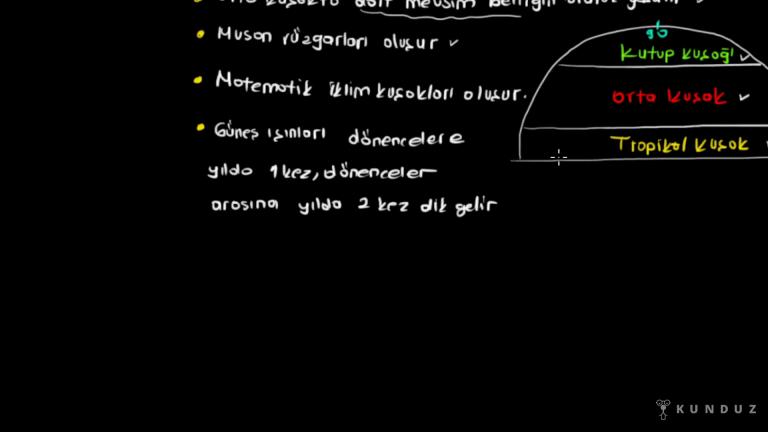 Orta kuşakta dört mevsim belirgin olarak
Muson rüzgarları oluşur
Matematik iklim kuşakları oluşur.
Güneş ışınları dönencelere
yılda 1 kez, dönenceler
arasına yılda 2 kez dik gelir
90
Kutup kuşağı
Orta kuşak
Tropikal kuşak
KUNDUZ